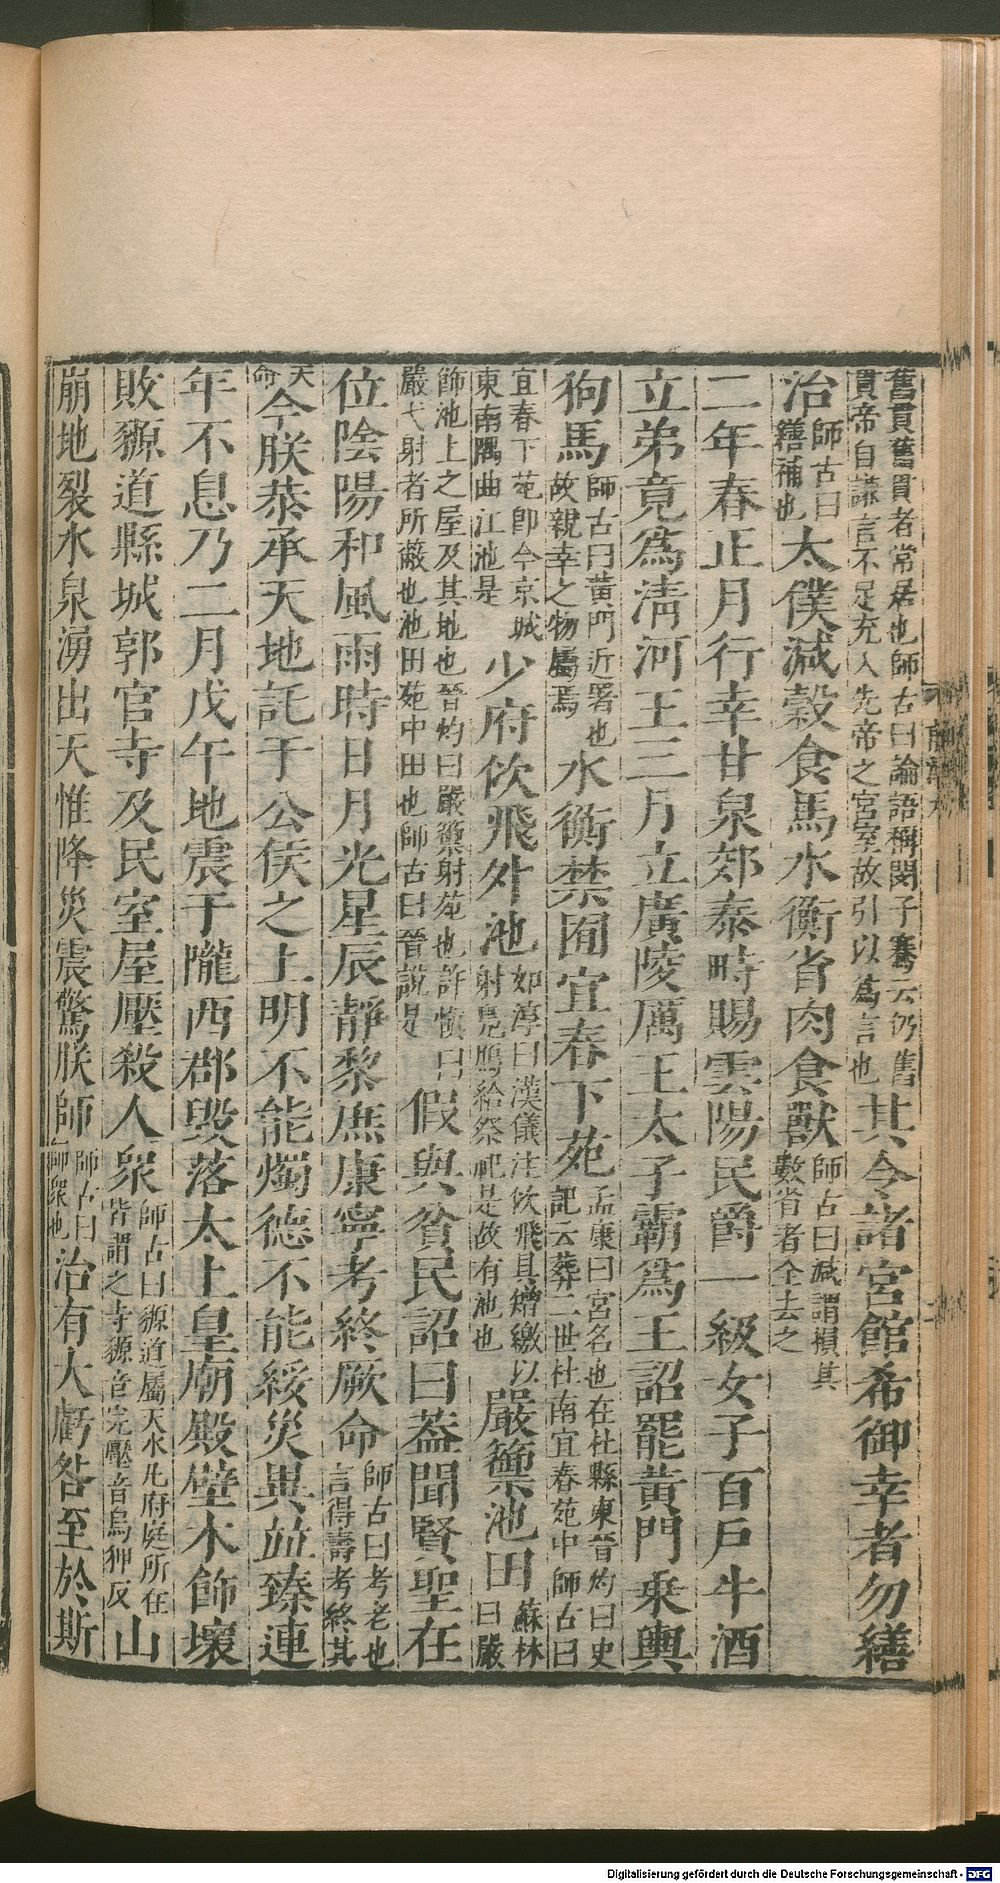 舊貫舊貫者常居也師古曰論語稱閔子騫云仍舊貫帝自謙言不足充入先帝之宮室故引以爲言也其令諸宮館希御幸者勿繕
治師古曰繕補也太僕減穀食馬水衡省肉食獸師古曰減謂損其數省者全去之
二年春正月行幸甘泉郊泰畤賜雲陽民爵一級女子百戶牛酒
立弟竟爲淸河王三月立廣陵厲王太子霸爲王詔罷黃門乘輿
狗馬師古曰黃門近署也故親幸之物屬焉水衡禁囿宜春下苑孟康曰宮名也在杜縣東晉灼曰史記云葬二世杜南宜春苑中師古曰
宜春下苑卽今京城東南隅曲江池是少府佽飛外池如淳曰漢儀注佽飛具矰繳以射鳧鴈給祭祀是故有池也嚴籞池田蘇林曰嚴
飾池上之屋及其地也晉灼曰嚴籞射苑也許愼曰嚴弋射者所蔽也池田苑中田也師古曰晉說是假與貧民詔曰蓋聞賢聖在
位陰陽和風雨時日月光星辰靜黎庶康寧考終厥命師古曰考老也言得壽考終其
天命今朕恭承天地託于公侯之上明不能燭德不能綏災異並臻連
年不息乃二月戊午地震于隴西郡毀落太上皇廟殿壁木飾壞
敗豲道縣城郭官寺及民室屋壓殺人衆師古曰豲道屬天水凡府庭所在皆謂之寺豲音完壓音烏狎反山
崩地裂水泉湧出天惟降災震驚朕師師古曰師衆也治有大虧咎至於斯
Digitalisierung gefördert durch die Deutsche Forschungsgemeinschaft - DFG